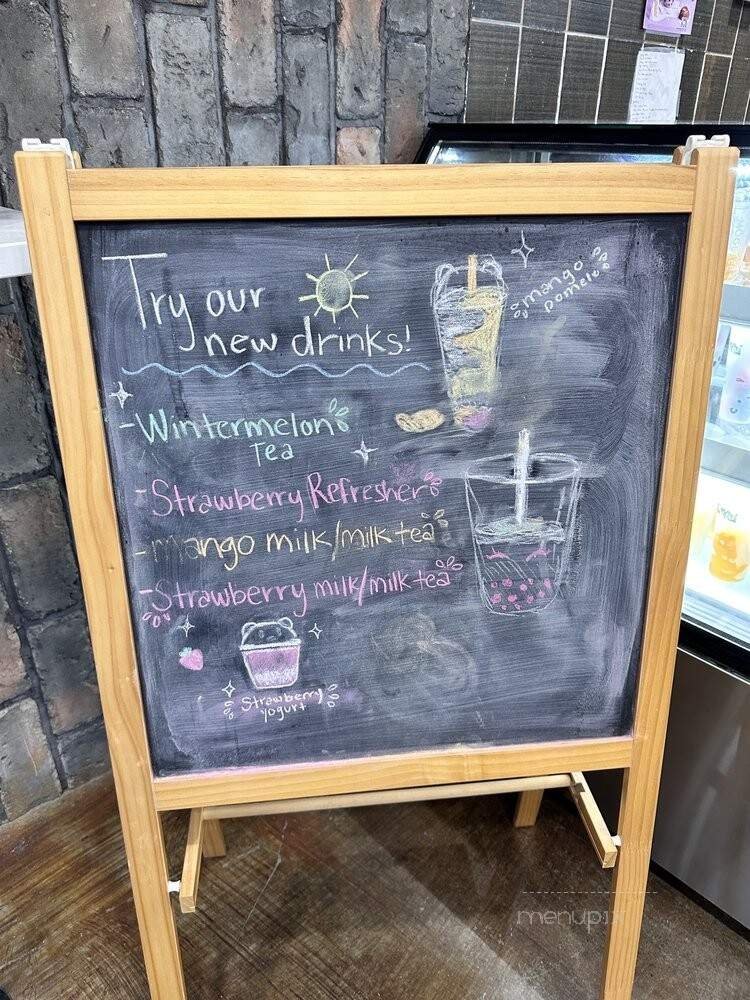 Try our
new drinks!
mango
pomelo
-Wintermelon
Tea
-Strawberry Refresher
-mango milk/milk tea
-Strawberry milk/milk tea
Strawberry
yogurt
menupix